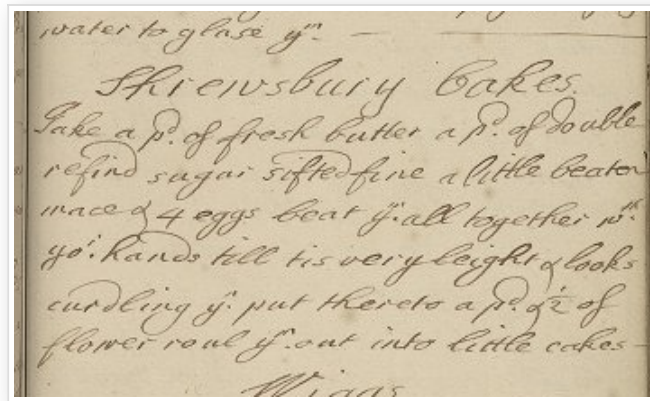 water to glase yᵐ. —
Shrewsbury Cakes.
Take a pd. of fresh butter a pd. of double
refind sugar sifted fine a little beaten
mace & 4 eggs beat yᵐ. all together wᵗʰ.
yoʳ. hands till tis very leight & looks
curdling yⁿ. put thereto a pd. & ½ of
flower roul yᵐ. out into little cakes
Wiggs